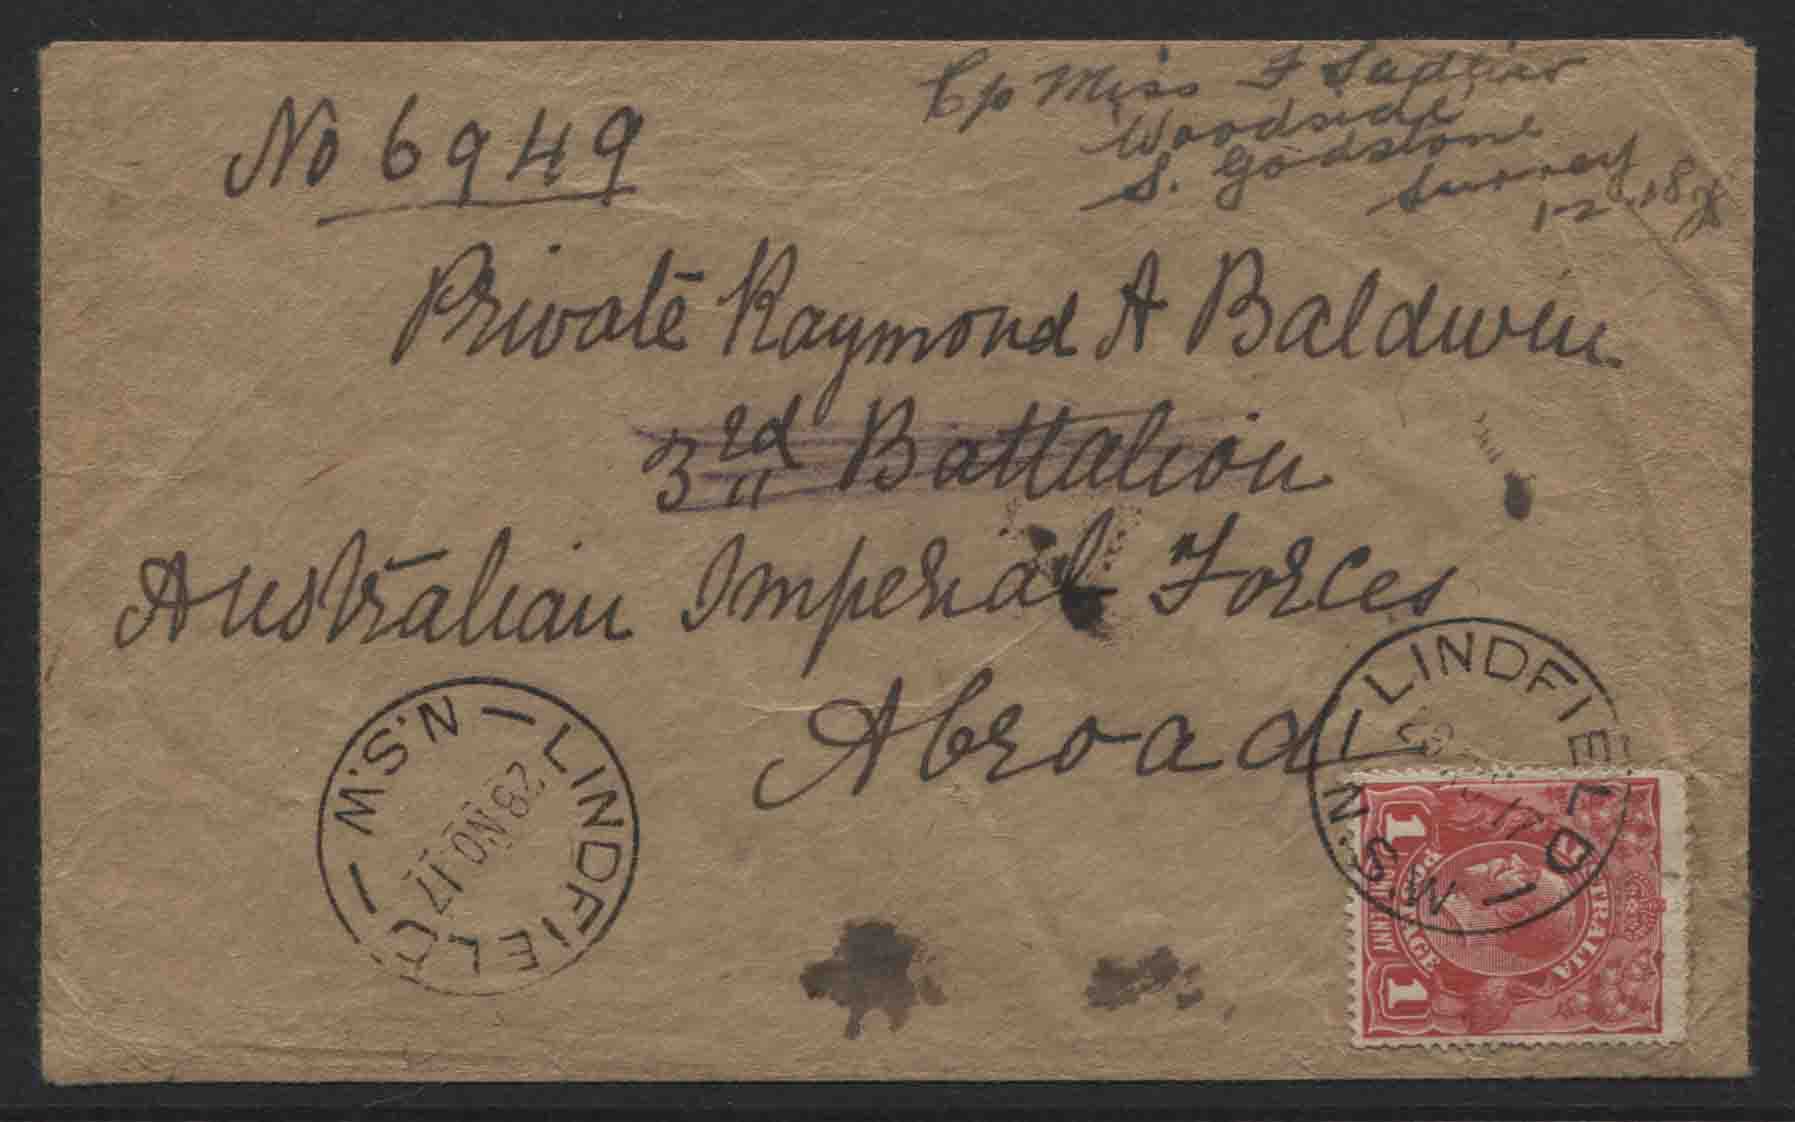 C/o Miss F Sadtier
Woodside
S. Godstone
Surrey
1-2-18
No 6949
Private Raymond A Baldwin
3rd Battalion
Australian Imperial Forces
Abroad
LINDFIELD
N.S.W
28 NO 17
LINDFIELD
N.S.W
17
AUSTRALIA
POSTAGE
1 1
PENNY